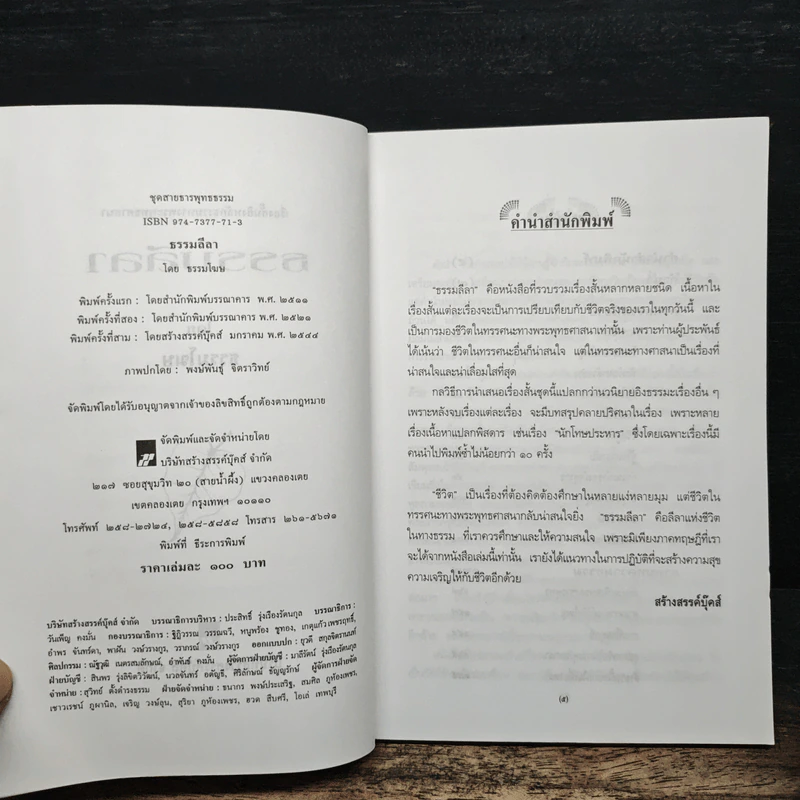 ชุดสายธารพุทธธรรม
ISBN 974-7377-71-3
ธรรมลีลา
โดย ธรรมโฆษ
พิมพ์ครั้งแรก : โดยสำนักพิมพ์บรรณาคาร พ.ศ. ๒๕๑๑
พิมพ์ครั้งที่สอง : โดยสำนักพิมพ์บรรณาคาร พ.ศ. ๒๕๒๑
พิมพ์ครั้งที่สาม : โดยสร้างสรรค์บุ๊คส์ มกราคม พ.ศ. ๒๕๔๔
ภาพปกโดย : พงษ์พันธุ์ จิตราวิทย์
จัดพิมพ์โดยได้รับอนุญาตจากเจ้าของลิขสิทธิ์ถูกต้องตามกฎหมาย
จัดพิมพ์และจัดจำหน่ายโดย
บริษัทสร้างสรรค์บุ๊คส์ จำกัด
๒๑๗ ซอยสุขุมวิท ๒๐ (สายน้ำผึ้ง) แขวงคลองเตย
เขตคลองเตย กรุงเทพฯ ๑๐๑๑๐
โทรศัพท์ ๒๕๘-๒๗๒๔, ๒๕๘-๕๘๕๘ โทรสาร ๒๖๑-๕๖๗๑
พิมพ์ที่ ธีระการพิมพ์
ราคาเล่มละ ๑๐๐ บาท
บริษัทสร้างสรรค์บุ๊คส์ จำกัด บรรณาธิการบริหาร : ประสิทธิ์ รุ่งเรืองรัตนกุล บรรณาธิการ :
วันเพ็ญ คงมั่น กองบรรณาธิการ : ฐิฏิวรรณ วรรณฉวี, หนูพร้อง ชูทอง, เกตุแก้ว เพชรฤทธิ์,
อำพร จันทร์ดา, พาฝัน วงษ์วรางกูร, วราภรณ์ วงษ์วรางกูร ออกแบบปก : ยุวดี สกุลจิตรานนท์
ศิลปกรรม : ณัฐวุฒิ เนตรสมลักษณ์, อำพันธ์ คงมั่น ผู้จัดการฝ่ายบัญชี : มาลีรัตน์ รุ่งเรืองรัตนกุล
ฝ่ายบัญชี : สินพร รุ่งลิขิตวิวัฒน์, นวลจันทร์ อดัญญี, ศิริลักษณ์ ธัญญรักษ์ ผู้จัดการฝ่ายจัด
จำหน่าย : สุวิทย์ ตั้งดำรงธรรม ฝ่ายจัดจำหน่าย : ธนากร พงษ์ประเสริฐ, สมศิล ภูท้องเพชร,
เชาวเรชน์ ภูผานิล, เจริญ วงษ์ลุน, สุริยา ภูท้องเพชร, ฮวด สืบศรี, โอเล่ เทพบุรี
คำนำสำนักพิมพ์
"ธรรมลีลา" คือหนังสือที่รวบรวมเรื่องสั้นหลากหลายชนิด เนื้อหาใน
เรื่องสั้นแต่ละเรื่องจะเป็นการเปรียบเทียบกับชีวิตจริงของเราในทุกวันนี้ และ
เป็นการมองชีวิตในทรรศนะทางพระพุทธศาสนาเท่านั้น เพราะท่านผู้ประพันธ์
ได้เน้นว่า ชีวิตในทรรศนะอื่นก็น่าสนใจ แต่ในทรรศนะทางศาสนาเป็นเรื่องที่
น่าสนใจและน่าเลื่อมใสที่สุด
กลวิธีการนำเสนอเรื่องสั้นชุดนี้แปลกกว่านวนิยายอิงธรรมะเรื่องอื่น ๆ
เพราะหลังจบเรื่องแต่ละเรื่อง จะมีบทสรุปคลายปริศนาในเรื่อง เพราะหลาย
เรื่องเนื้อหาแปลกพิสดาร เช่นเรื่อง "นักโทษประหาร" ซึ่งโดยเฉพาะเรื่องนี้มี
คนนำไปพิมพ์ซ้ำไม่น้อยกว่า ๑๐ ครั้ง
"ชีวิต" เป็นเรื่องที่ต้องคิดต้องศึกษาในหลายแง่หลายมุม แต่ชีวิตใน
ทรรศนะทางพระพุทธศาสนากลับน่าสนใจยิ่ง "ธรรมลีลา" คือลีลาแห่งชีวิต
ในทางธรรม ที่เราควรศึกษาและให้ความสนใจ เพราะมิเพียงภาคทฤษฎีที่เรา
จะได้จากหนังสือเล่มนี้เท่านั้น เรายังได้แนวทางในการปฏิบัติที่จะสร้างความสุข
ความเจริญให้กับชีวิตอีกด้วย
สร้างสรรค์บุ๊คส์
(๕)